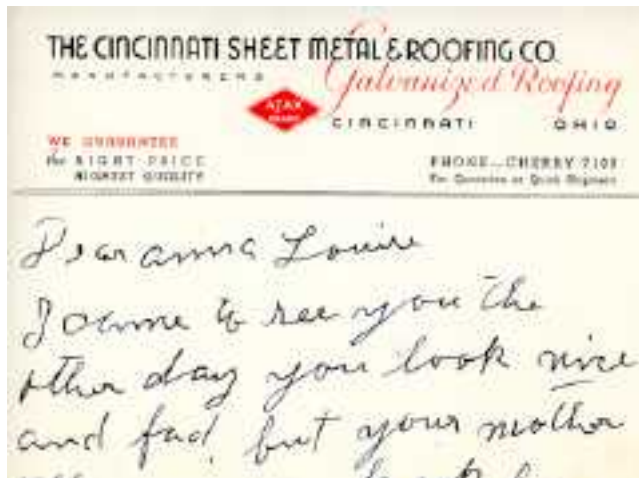 THE CINCINNATI SHEET METAL & ROOFING CO.
MANUFACTURERS
Galvanized Roofing
AJAX
BRAND
CINCINNATI OHIO
WE GUARANTEE
the RIGHT PRICE
HIGHEST QUALITY
PHONE—CHERRY 7100
For Quotation or Quick Shipment
Dear anna Louise
I came to see you the
other day you look nice
and fad, but your mother